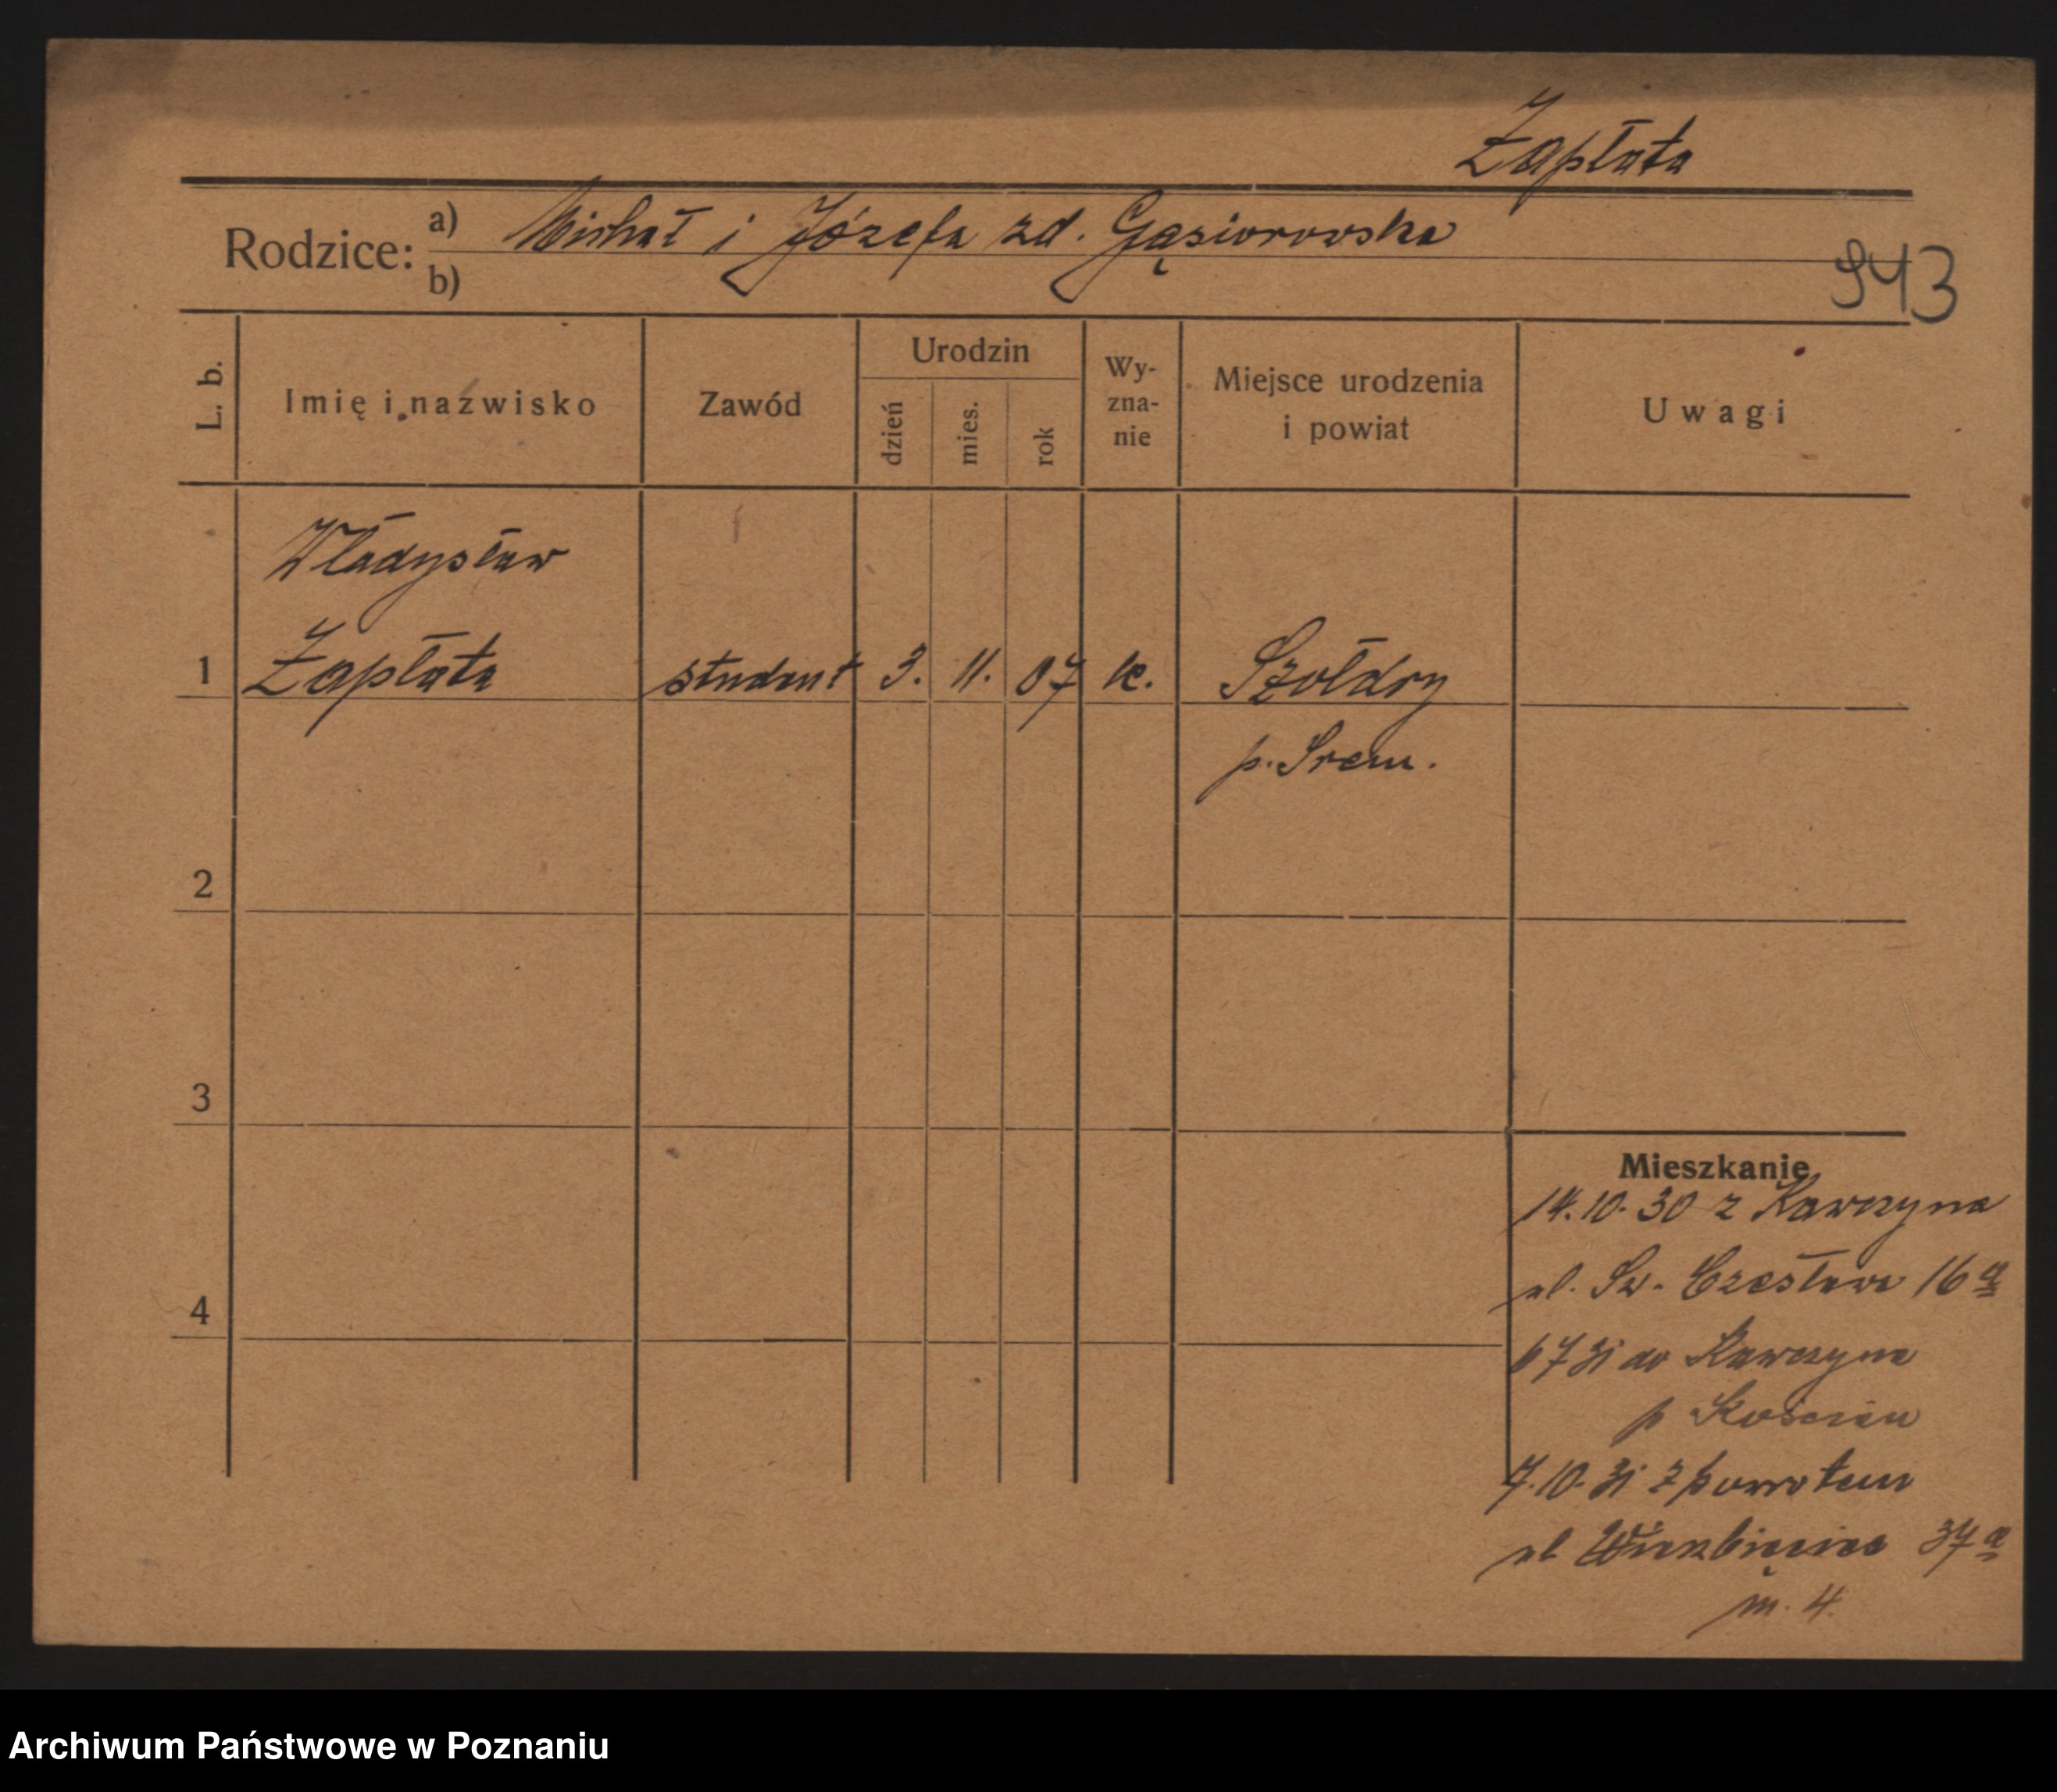 Zapłata
Rodzice: a) Michał i Józefa zd. Gąsiorowska
b)
943
L. b.
Imię i nazwisko
Zawód
Urodzin
dzień
mies.
rok
Wy-
zna-
nie
Miejsce urodzenia
i powiat
Uwagi
Władysław
1 Zapłata student 3. 11. 07 k. Szołdry
p. Srem.
2
3
4
Mieszkanie
14.10.30 z Kawczyna
ul. Św. Czesława 16a
6 7 31 do Kawczyna
p Kościan
7.10.31 z powrotem
ul Wierzbięcice 37a
m. 4.
Archiwum Państwowe w Poznaniu